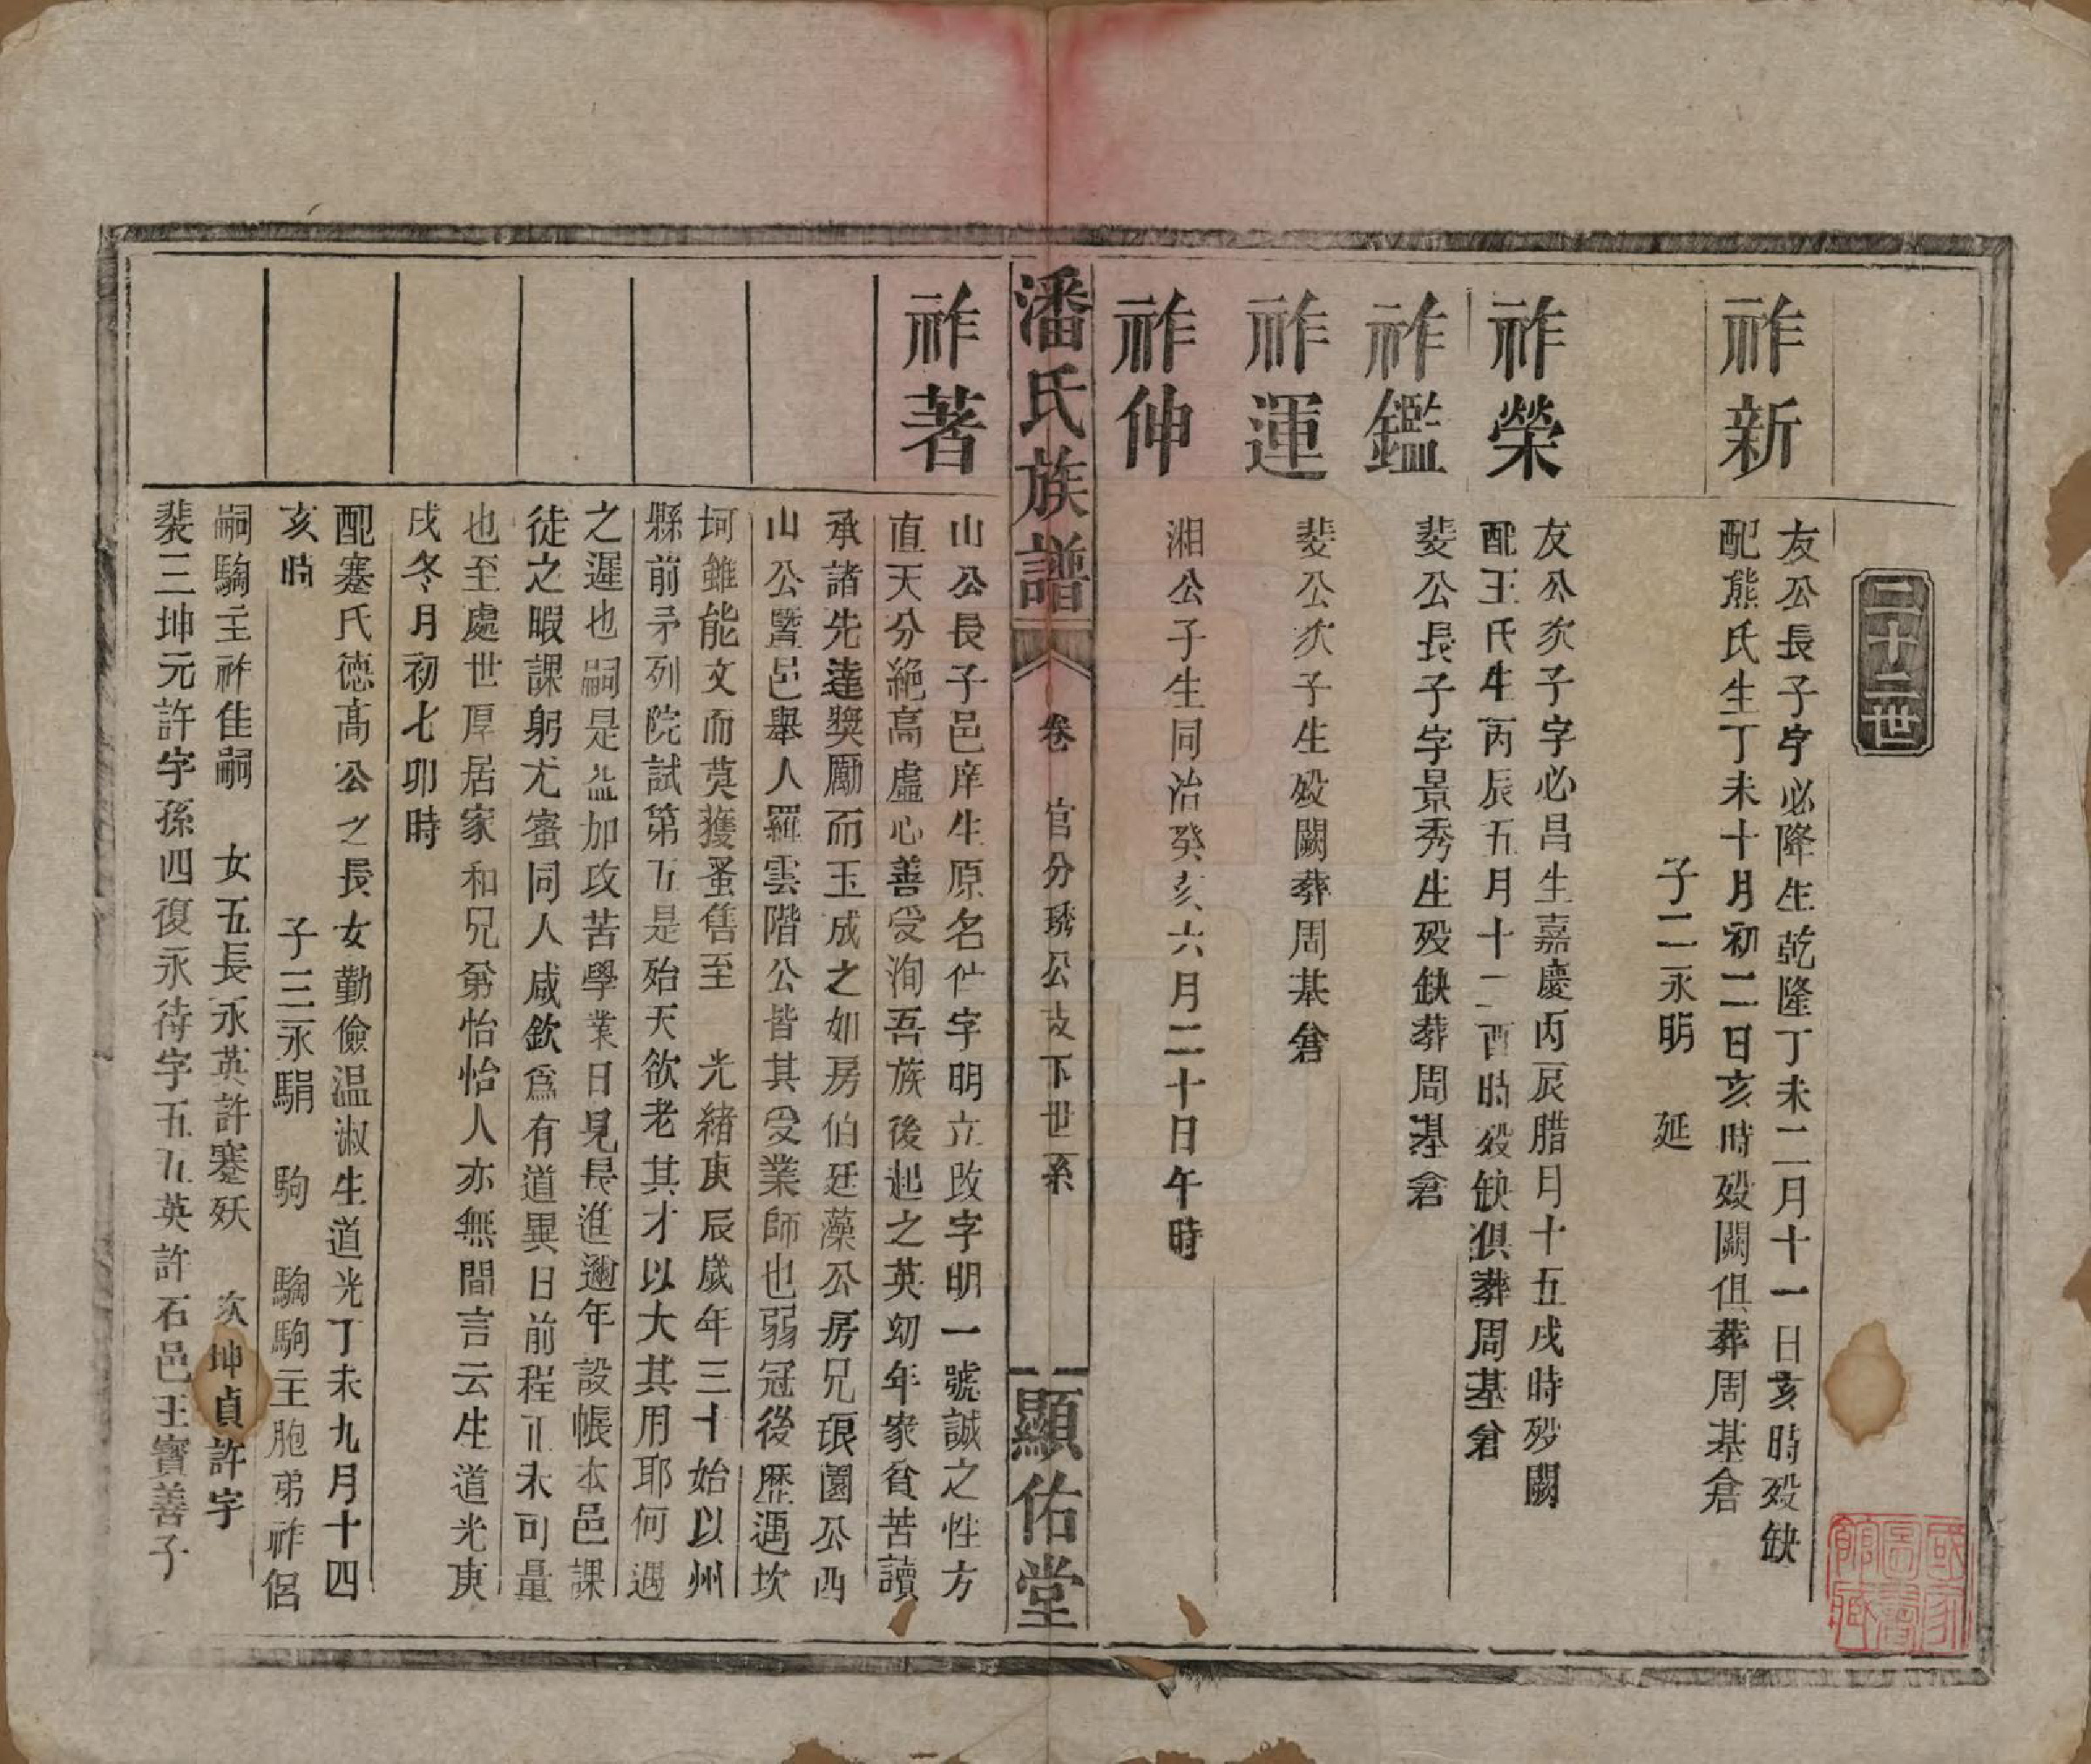 二十二世
祚新
友公長子字必降生乾隆丁未二月十一日亥時歿缺
配熊氏生丁未十月初二日亥時歿闕俱葬周基倉
子二永明　延
祚榮
友公次子字必昌生嘉慶丙辰腊月十五戌時歿闕
配王氏生丙辰五月十二酉時歿缺俱葬周基倉
祚鑑
斐公長子字景秀生歿缺葬周基倉
祚運
斐公次子生歿闕葬周基倉
祚伸
湘公子生同治癸亥六月二十日午時
潘氏族譜　卷　官分琇公支下世系　顯佑堂
祚著
山公長子邑庠生原名仕字明立改字明一號誠之性方
直天分絶高虛心善受洵吾族後起之英幼年家貧苦讀
承諸先達獎勵而玉成之如房伯廷藻公房兄琅園公西
山公曁邑舉人羅雲階公皆其受業師也弱冠後歷遇坎
坷雖能文而莫獲蚤售至　光緒庚辰歲年三十始以州
縣前矛列院試第五是殆天欲老其才以大其用耶何遇
之遲也嗣是益加攻苦學業日見長進邇年設帳本邑課
徒之暇課躬尤蜜同人咸欽爲有道異日前程正未可量
也至處世厚居家和兄弟怡怡人亦無間言云生道光庚
戌冬月初七卯時
配蹇氏德高公之長女勤儉温淑生道光丁未九月十四
亥時　子三永騆　駒　騊駒主胞弟祚侶
嗣騊主祚佳嗣　女五長永英許蹇妖　次坤貞許字
裴三坤元許字孫四復永待字五五英許石邑王寳善子
國家圖書館藏